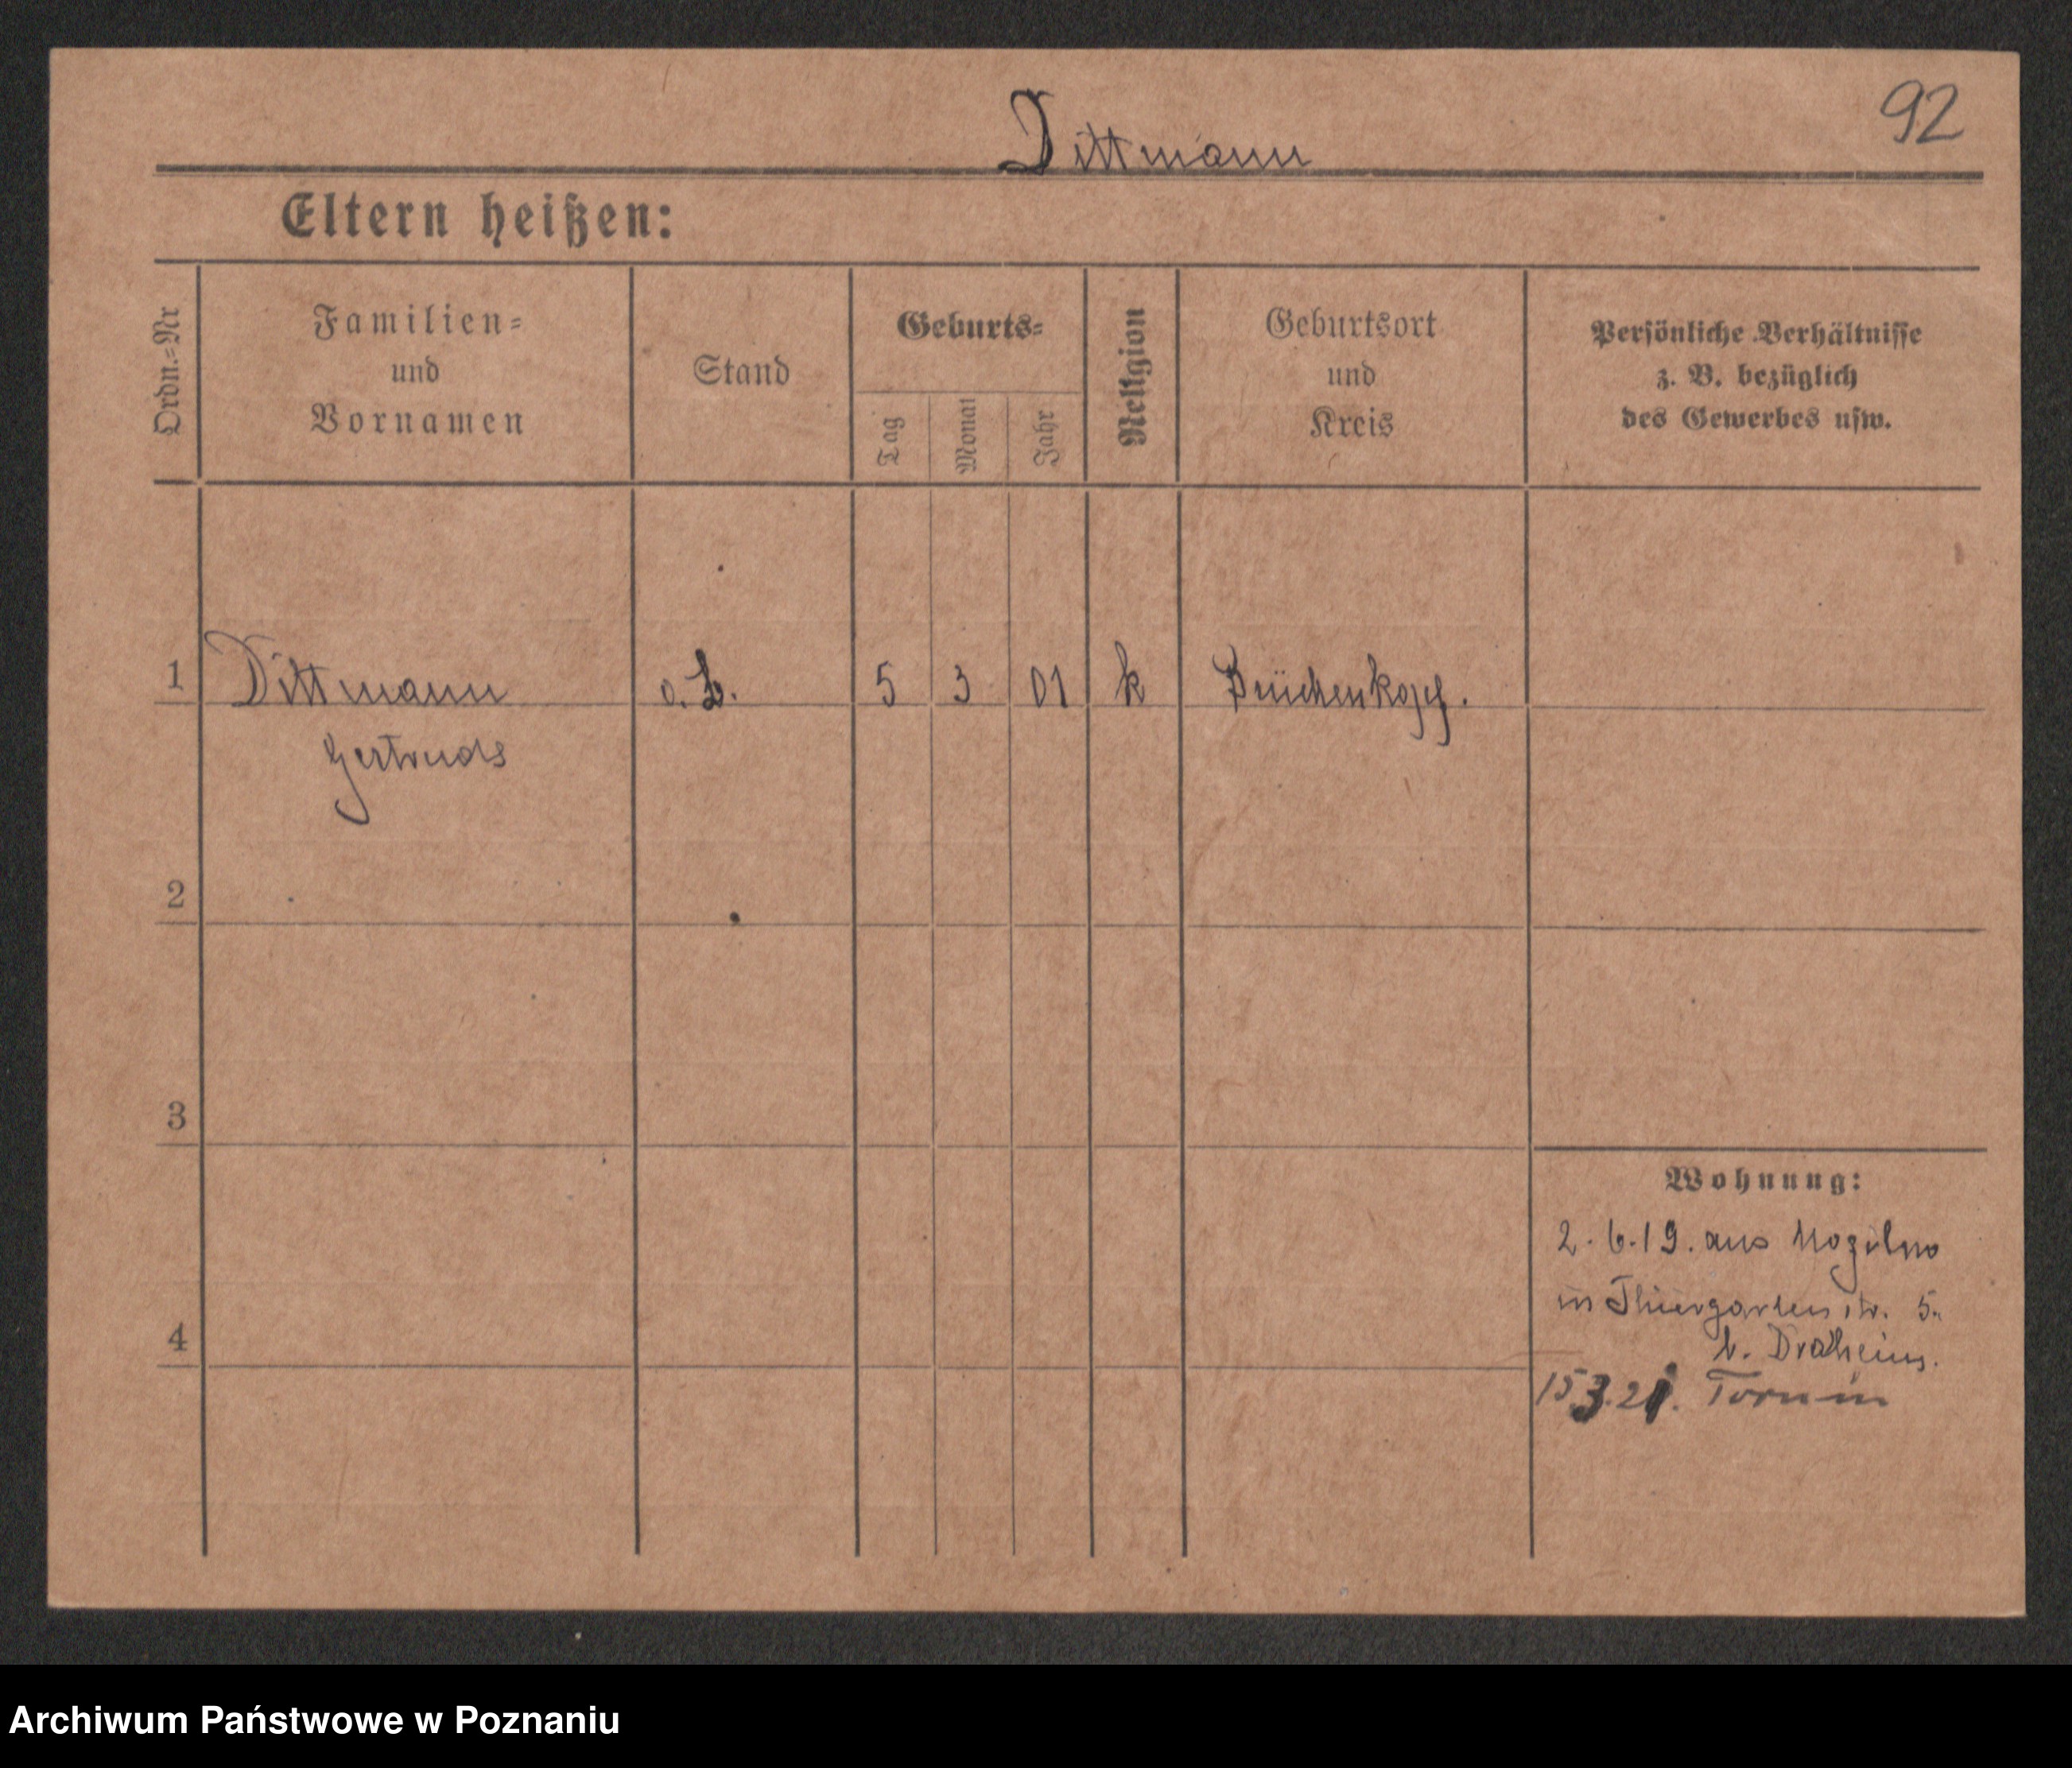 92
Dittmann
Eltern heißen:
Ordn.=Nr
Familien=
und
Vornamen
Stand
Geburts=
Tag
Monat
Jahr
Religion
Geburtsort
und
Kreis
Persönliche Verhältnisse
z. B. bezüglich
des Gewerbes usw.
1 Dittmann o. 5 3 01 k Brückenkopf.
Gertruds
2
3
4
Wohnung:
2.6.19. aus Mogilno
in Thiergartenstr. 5.
b. Draheim.
15.3.21.
Archiwum Państwowe w Poznaniu